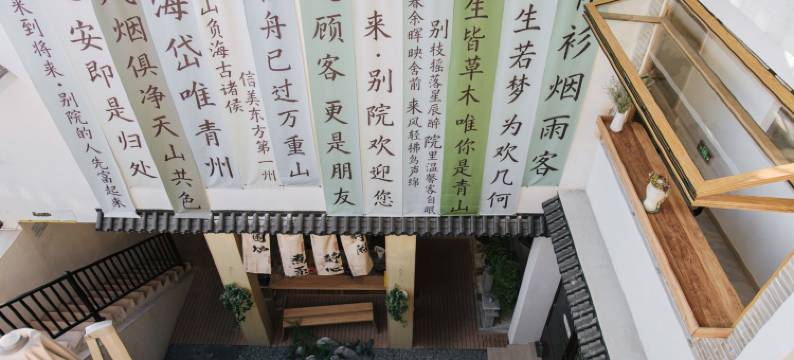 来到将来·别院的人先富起来
安即是归处
烟俱净天山共色
海岱唯青州
山负海古诸侯
信美东方第一州
舟已过万重山
顾客更是朋友
来·别院欢迎您
春余晖映舍前 来风轻拂鸟声绵
别枝摇落星辰醉 院里温馨客自眠
生皆草木唯你是青山
生若梦为欢几何
衫烟雨客